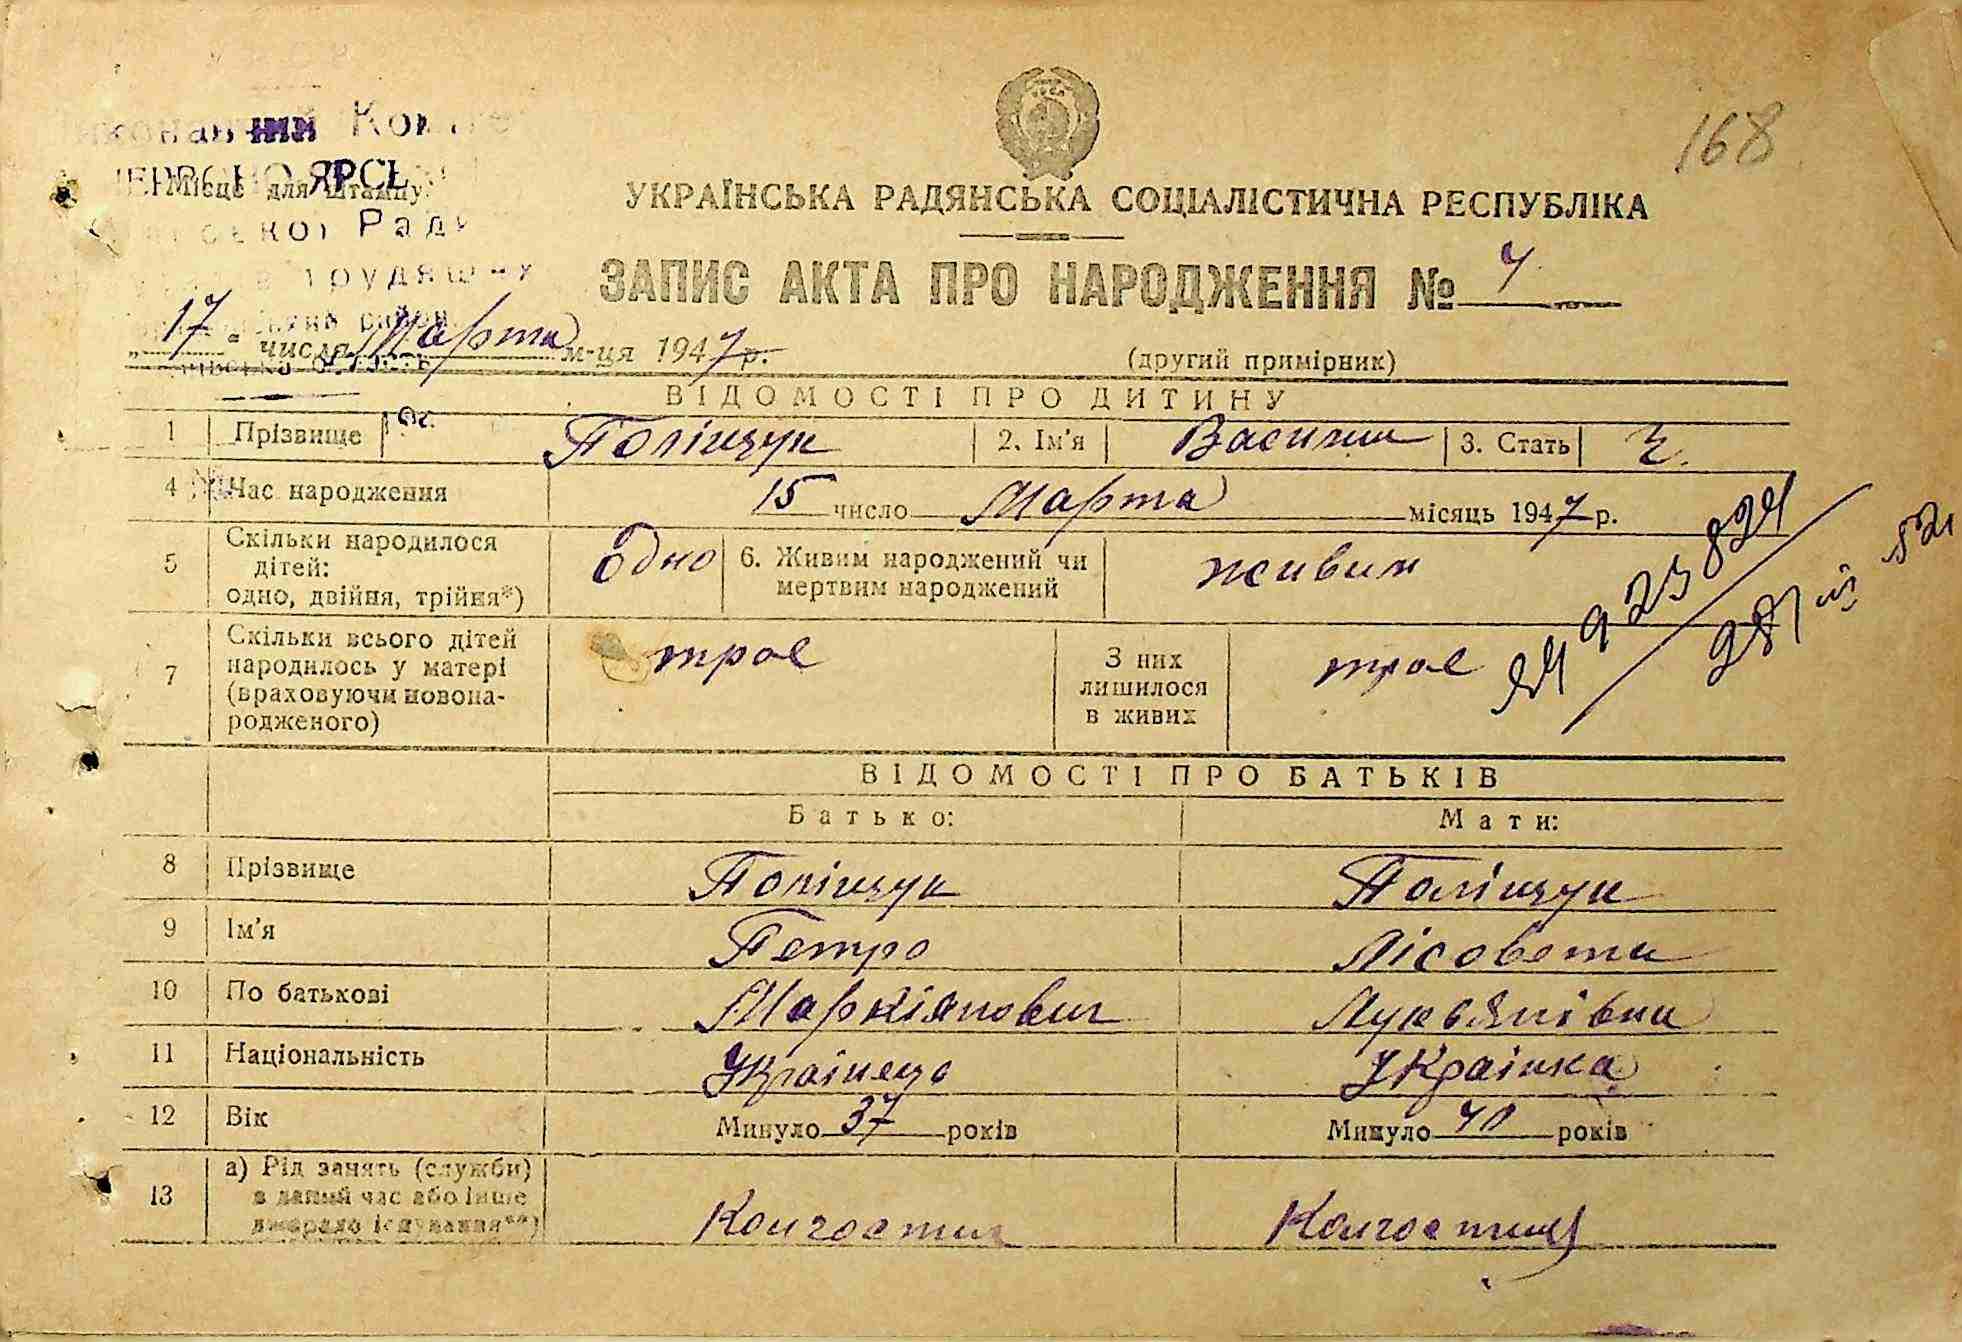 168
Місце для штампу
УКРАЇНСЬКА РАДЯНСЬКА СОЦІАЛІСТИЧНА РЕСПУБЛІКА
ЗАПИС АКТА ПРО НАРОДЖЕННЯ №
„17" числа Марта м-ця 1947 р.
(другий примірник)
ВІДОМОСТІ ПРО ДИТИНУ
1 Прізвище Поліщук 2. Ім'я 3. Стать Ч.
4 Час народження 15 число Марта місяць 1947 р.
5 Скільки народилося дітей: одно, двійня, трійня*) Одно 6. Живим народжений чи мертвим народжений живим
7 Скільки всього дітей народилось у матері (враховуючи новонародженого) троє З них лишилося в живих троє
ВІДОМОСТІ ПРО БАТЬКІВ
Батько: Мати:
8 Прізвище Поліщук Поліщук
9 Ім'я Петро Лісовета
10 По батькові Маркіянович Лукьянівна
11 Національність Українець Українка
12 Вік Минуло 37 років Минуло 40 років
13 а) Рід занять (служби) в даний час або інше джерело існування**) Колгоспник Колгоспниця